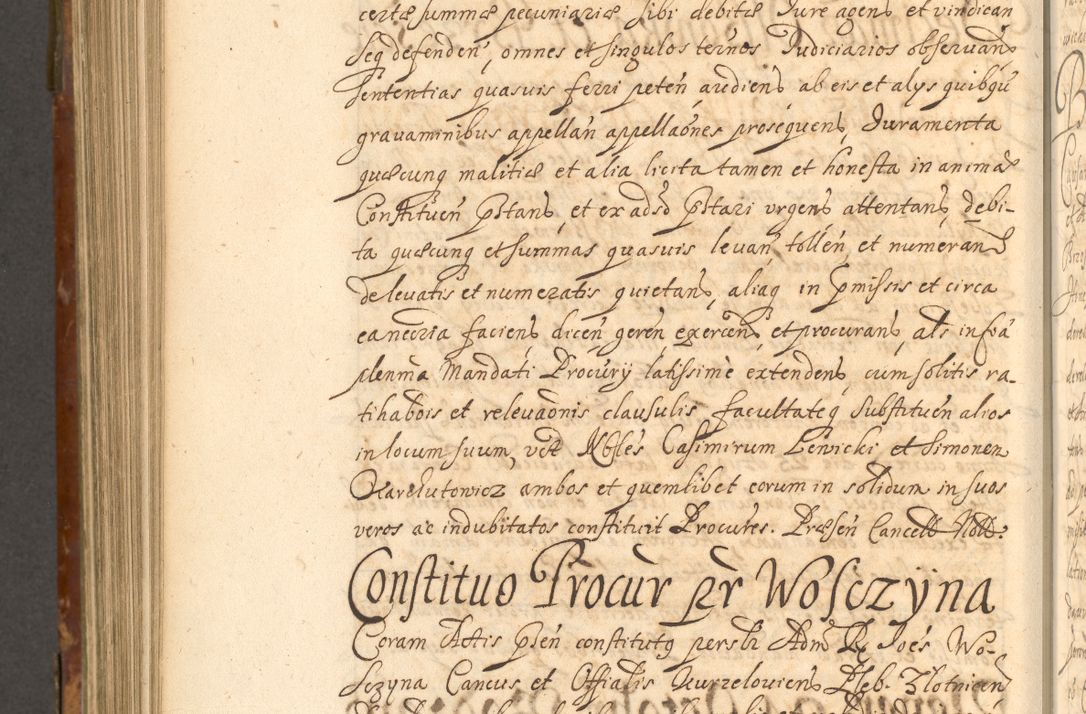 certæ summæ pecuniariæ sibi debitæ Jure agens et vindican
seq̃ defendeń, omnes et singulos ternos Judiciarios observań
sententias quasvis ferri peteń audiens ab eis et alys quibqũ
gravaminibus appellań appellaões prosequens, Juramenta
quæcunq malitiæ et alia licita tamen et honesta in animã
Constitueń p̃stans, et ex adso p̃stari urgens attentans, debi-
ta quæcunq et summas quasvis levań tolleń, et numerand
de levatis et numeratis quietans, aliaq in p̃missis et circa
ea necria faciens diceń gereń exercens, et procurans, als in foã
plenma Mandati Procury latissime extendens, cum solitis ra-
tihabõis et relevaõnis clausulis facultateq Substitueń alios
in locum suum, vdt Nobles Casimirum Lewicki, et Simonem
Karchutowicz ambos et quemlibet eorum in solidum in suos
veros ac indubitatos constituit Procures. Præseń Cancell Notto.
Constituo Procur pr Wosczyna
Coram Actis p̃sen constitutq persli Adm R Joes Wo-
sczyna Cancus et Offialis Kurzeloviens Pleb. Zlotnicen